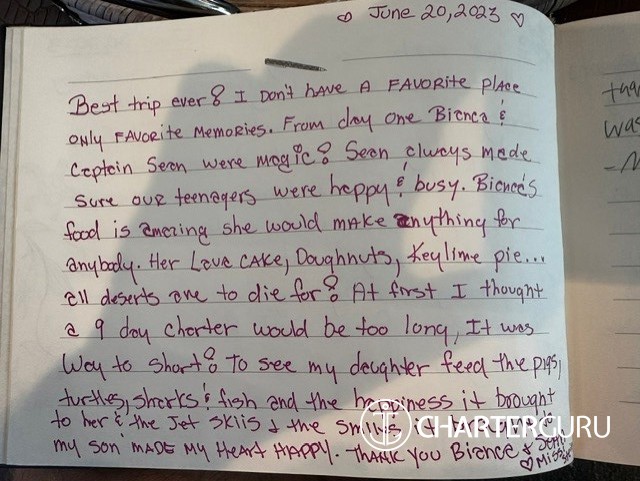 ♡ June 20, 2023 ♡
Best trip ever! I Don't have A FAVORITE place
ONLY FAVORITE Memories. From day one Bianca &
Captain Sean were magic! Sean always made
sure our teenagers were happy & busy. Bianca's
food is amazing she would make anything for
anybody. Her Love CAKE, Doughnuts, Keylime pie...
all deserts are to die for! At first I thought
a 9 day charter would be too long, It was
Way to short! To see my daughter feed the pigs,
turtles, sharks & fish and the happiness it brought
to her & the Jet Skiis & the smiles it
my son MADE MY HEART HAPPY. THANK YOU Bianca & Sean
♡ Miss
CHARTERGURU
was